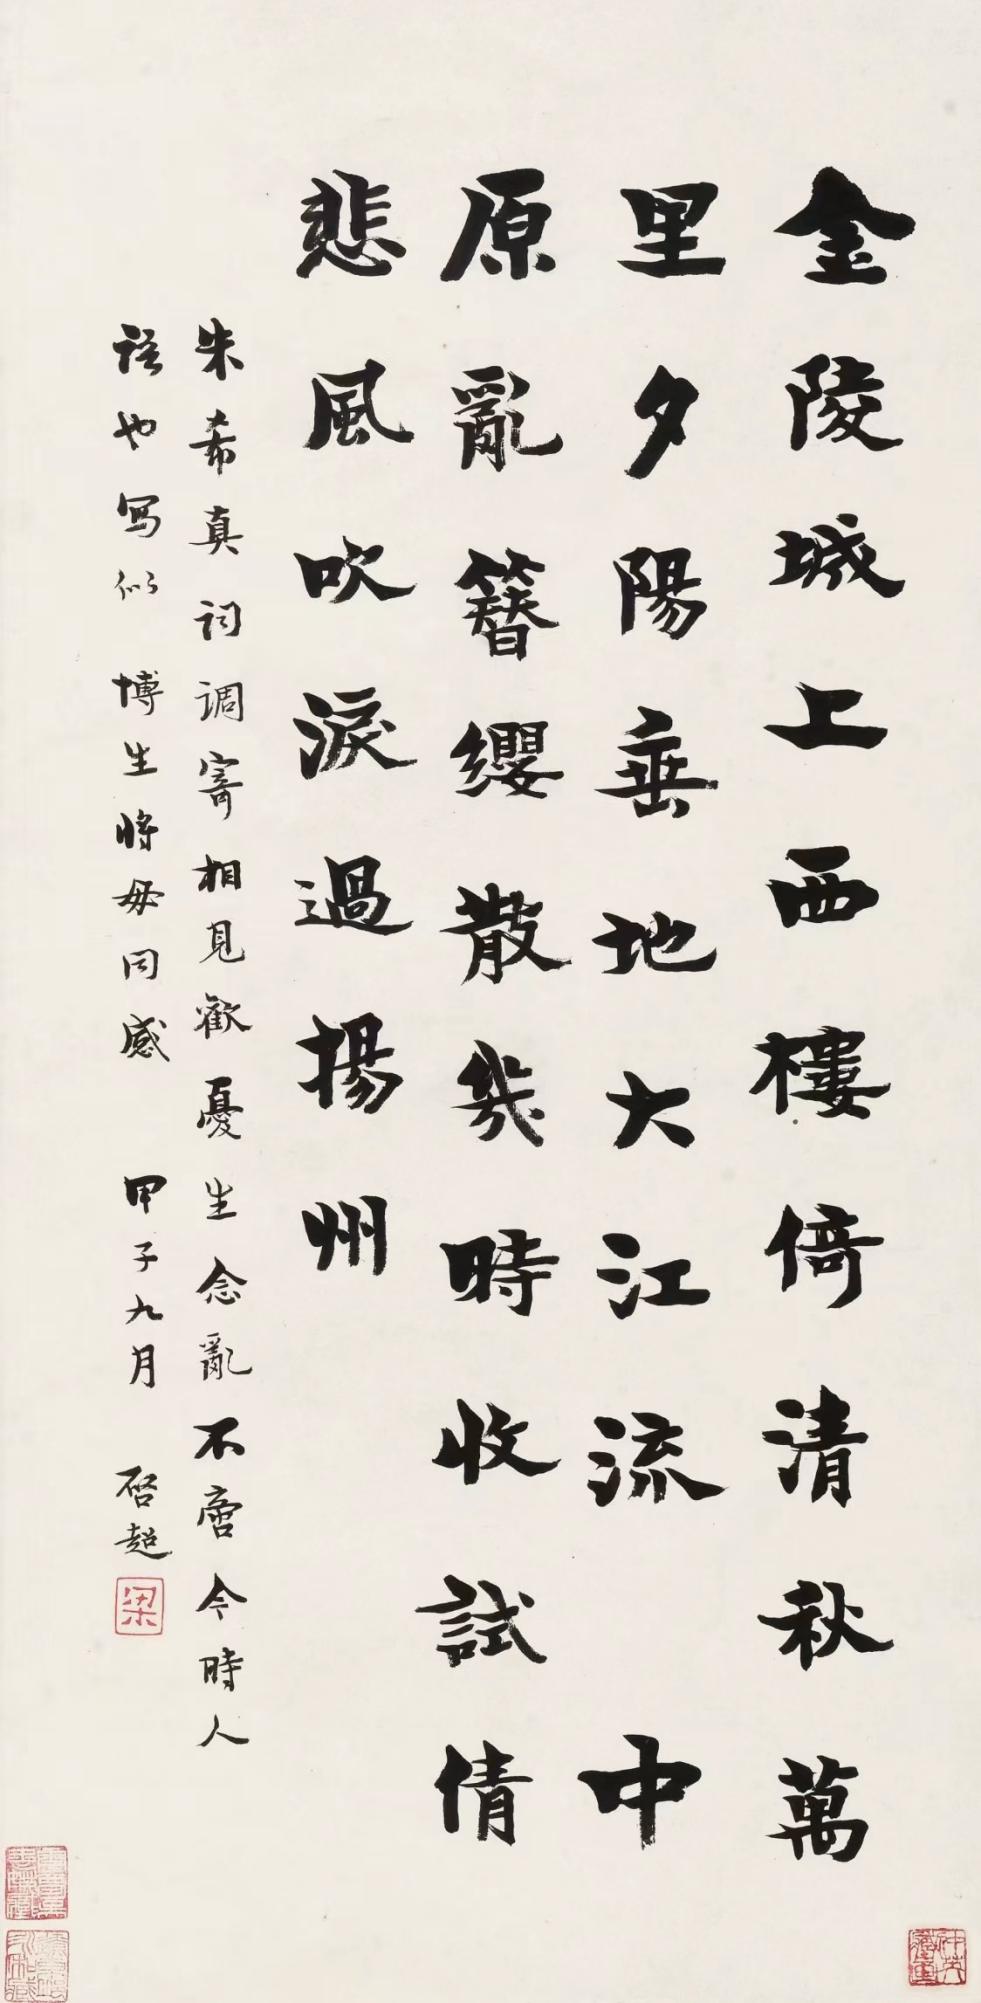 金陵城上西樓倚清秋萬
里夕陽垂地大江流 中
原亂簪纓散幾時收試倩
悲風吹淚過揚州
朱希真词调寄相見歡憂生念亂不啻今時人
語也写似博生將毋同感 甲子九月 启超
梁